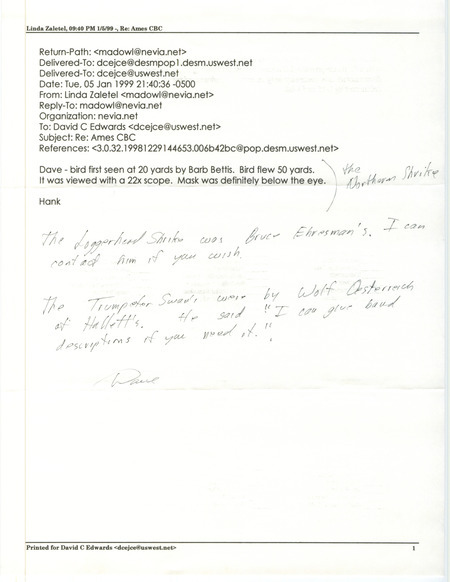 Linda Zaletel, 09:40 PM 1/5/99 -, Re: Ames CBC
Return-Path: <madowl@nevia.net>
Delivered-To: dcejce@desmpop1.desm.uswest.net
Delivered-To: dcejce@uswest.net
Date: Tue, 05 Jan 1999 21:40:36 -0500
From: Linda Zaletel <madowl@nevia.net>
Reply-To: madowl@nevia.net
Organization: nevia.net
To: David C Edwards <dcejce@uswest.net>
Subject: Re: Ames CBC
References: <3.0.32.19981229144653.006b42bc@pop.desm.uswest.net>
Dave - bird first seen at 20 yards by Barb Bettis. Bird flew 50 yards.
It was viewed with a 22x scope. Mask was definitely below the eye.
the
Northern Shrike
Hank
The Loggerhead Shrike was Bruce Ehresman's. I can
contact him if you wish.
The Trumpeter Swans were by Wolf Oesterreich
at Hallett's. He said "I can give band
descriptions if you need it."
Dave
Printed for David C Edwards <dcejce@uswest.net> 1